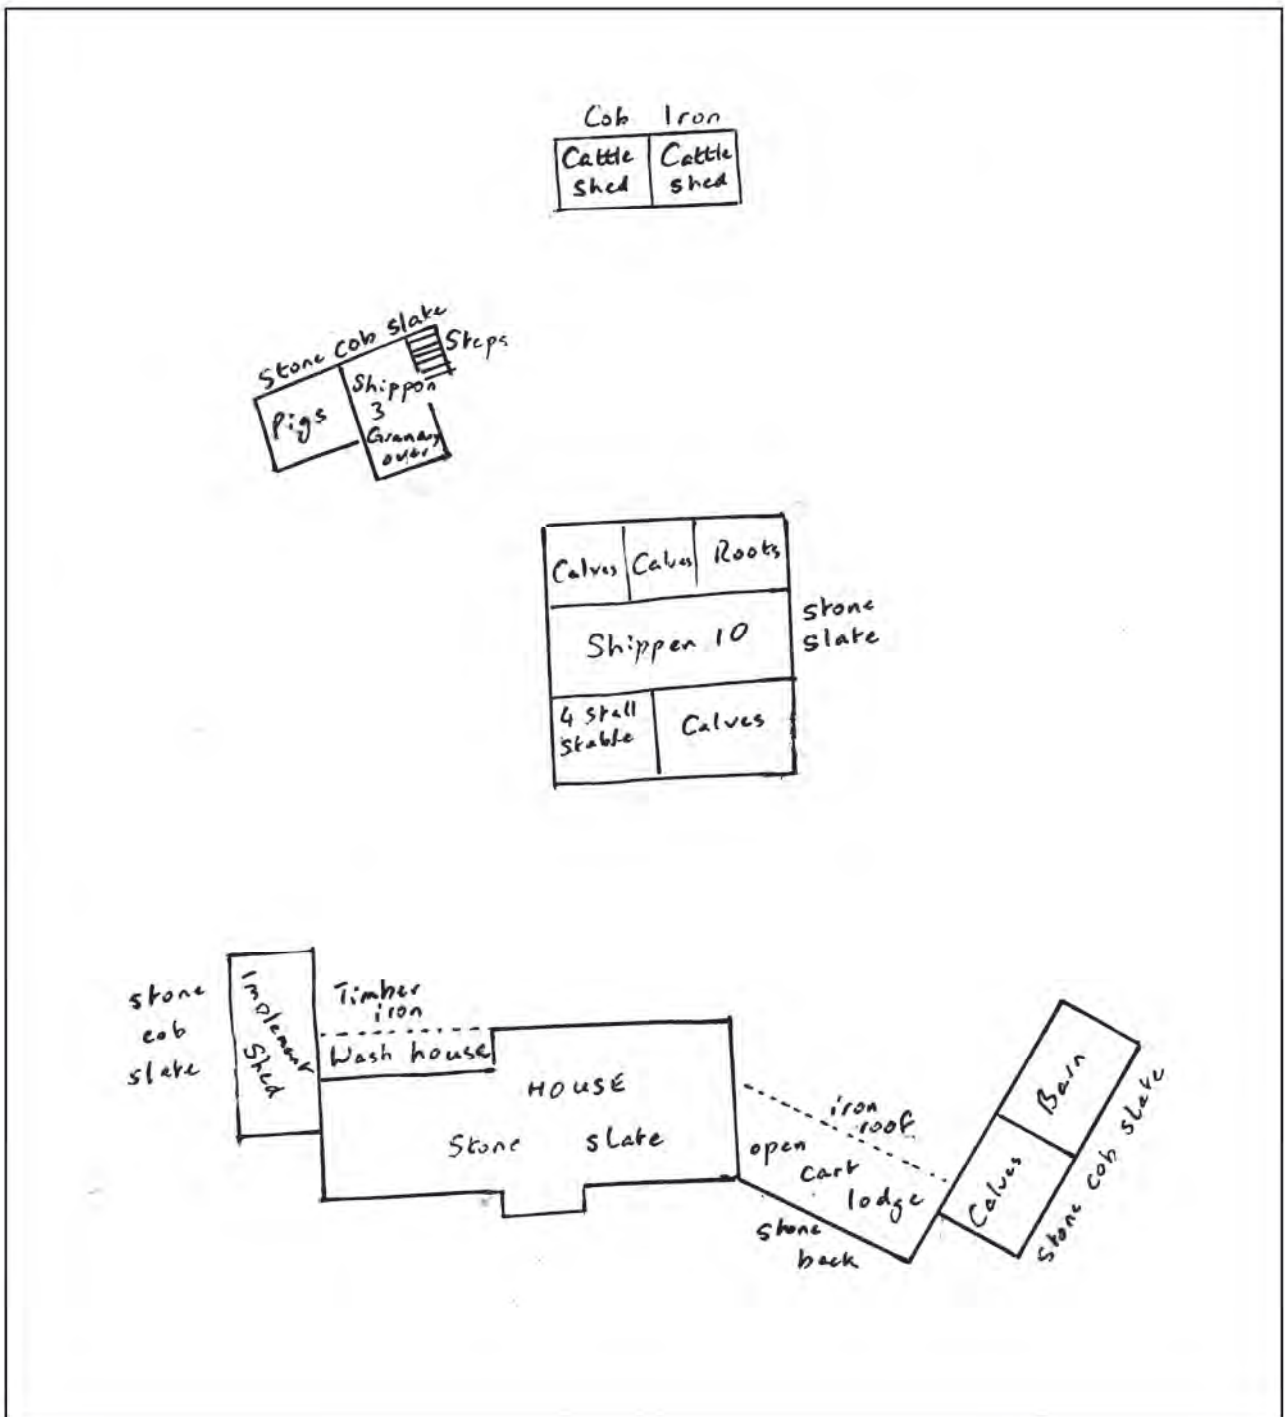 Cob Iron
Cattle
shed
Cattle
shed
Stone cob slate
Steps
Pigs
Shippon
3
Granary
over
Calves
Calves
Roots
Shippen 10
stone
slate
4 stall
stable
Calves
stone
cob
slate
Implement
Shed
Timber
iron
Wash house
HOUSE
Stone slate
iron
roof
open
cart
lodge
stone
back
Barn
Calves
Stone cob slate